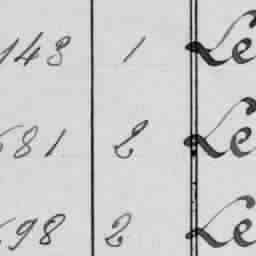 148 1 Le
681 2 Le
698 2 Le